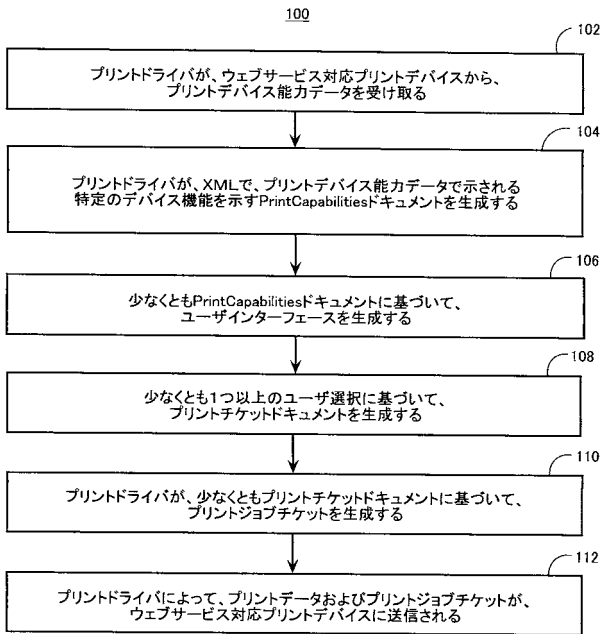 100
102
プリントドライバが、ウェブサービス対応プリントデバイスから、
プリントデバイス能力データを受け取る
104
プリントドライバが、XMLで、プリントデバイス能力データで示される
特定のデバイス機能を示すPrintCapabilitiesドキュメントを生成する
106
少なくともPrintCapabilitiesドキュメントに基づいて、
ユーザインターフェースを生成する
108
少なくとも1つ以上のユーザ選択に基づいて、
プリントチケットドキュメントを生成する
110
プリントドライバが、少なくともプリントチケットドキュメントに基づいて、
プリントジョブチケットを生成する
112
プリントドライバによって、プリントデータおよびプリントジョブチケットが、
ウェブサービス対応プリントデバイスに送信される